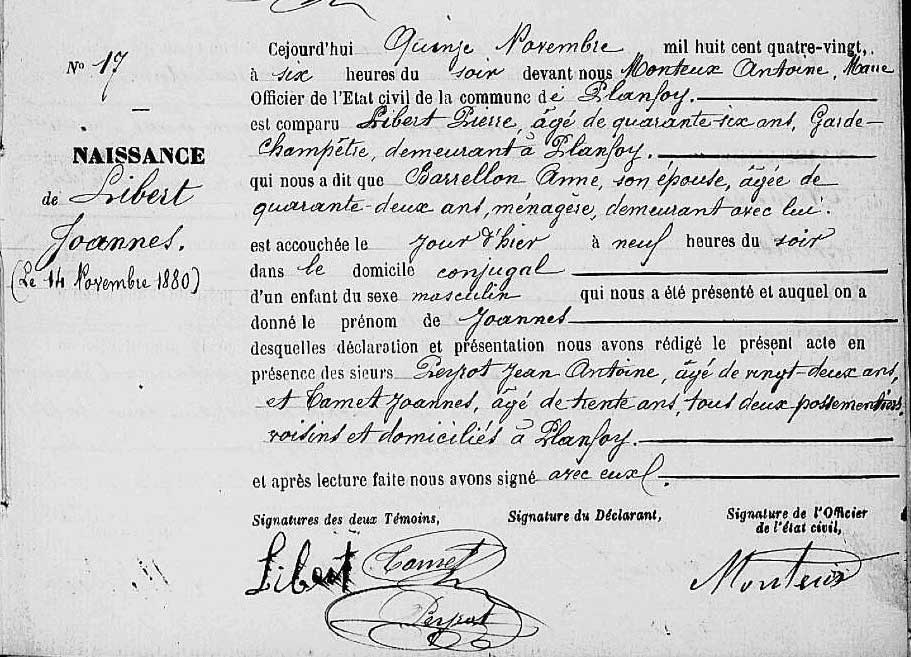 Nº 17
NAISSANCE
de Libert
Joannes.
(Le 14 Novembre 1880)
Cejourd'hui Quinze Novembre mil huit cent quatre-vingt,
à six heures du soir devant nous Monteux Antoine, Maire
Officier de l'Etat civil de la commune de Planfoy.
est comparu Libert Pierre, âgé de quarante-six ans, Garde-
Champêtre, demeurant à Planfoy.
qui nous a dit que Barrellon Anne, son épouse, âgée de
quarante-deux ans, ménagère, demeurant avec lui.
est accouchée le jour d'hier à neuf heures du soir
dans le domicile conjugal
d'un enfant du sexe masculin qui nous a été présenté et auquel on a
donné le prénom de Joannes
desquelles déclaration et présentation nous avons rédigé le présent acte en
présence des sieurs Peyrot Jean Antoine, âgé de vingt-deux ans,
et Tamet Joannes, âgé de trente ans, tous deux passementiers
voisins et domiciliés à Planfoy.
et après lecture faite nous avons signé avec eux.
Signatures des deux Témoins, Signature du Déclarant, Signature de l'Officier
de l'état civil,
Libert Tamet Monteux
Peyrot